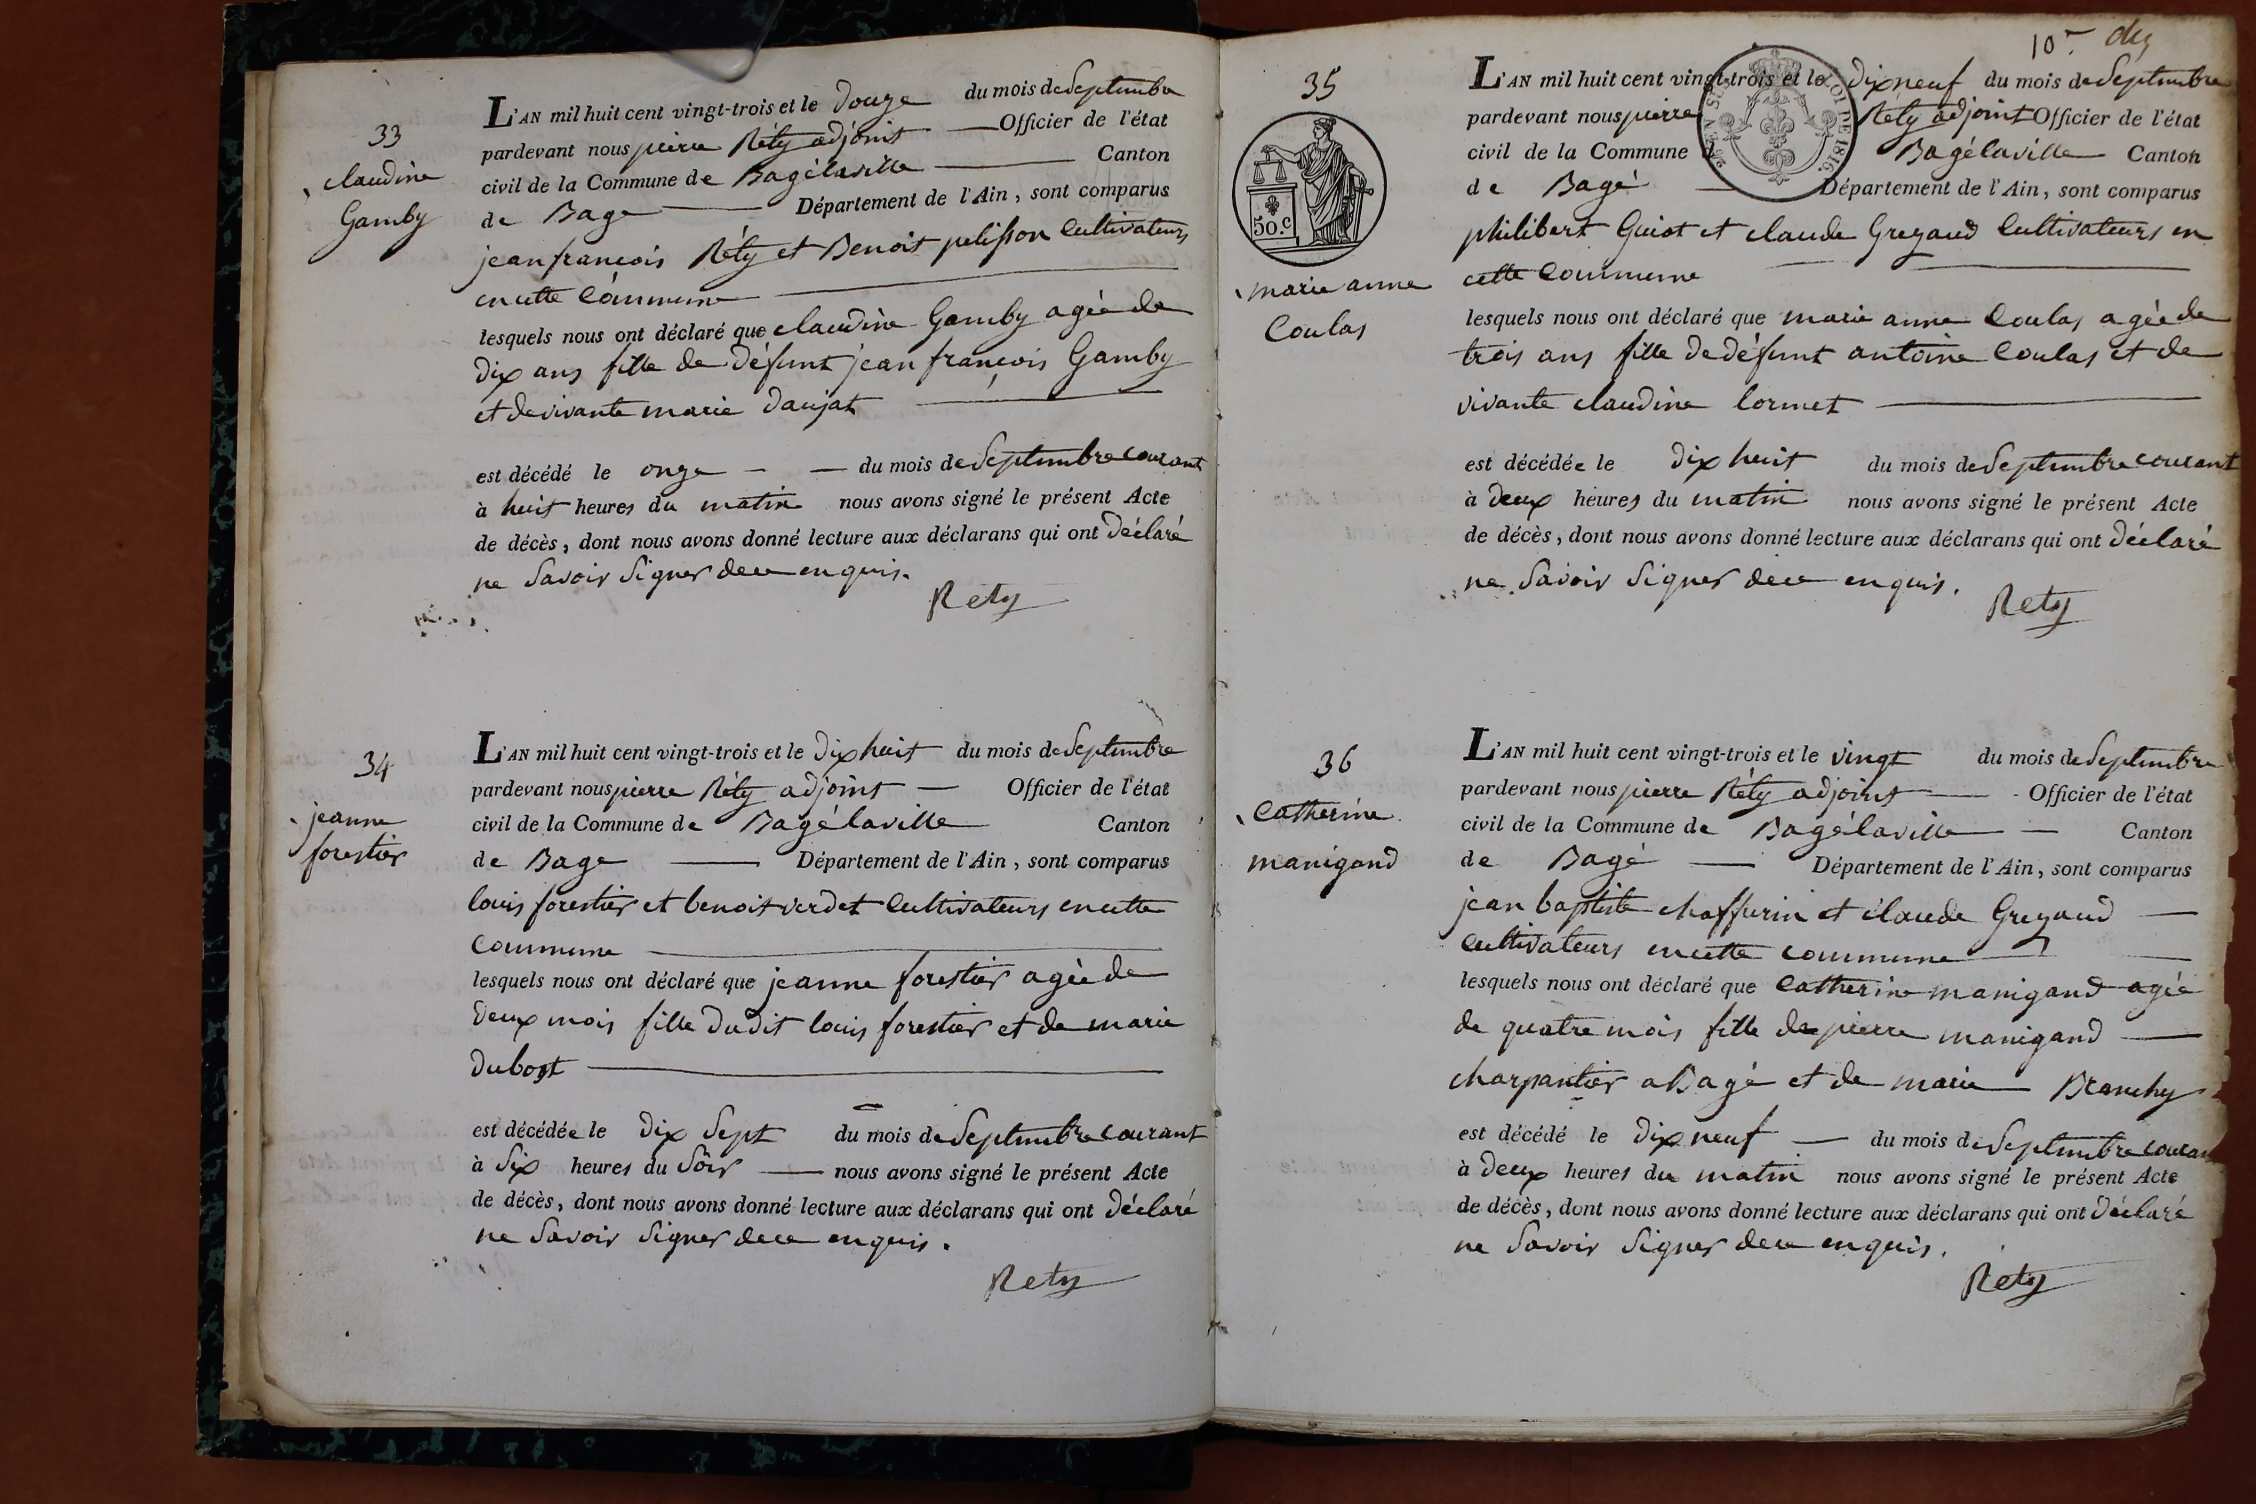 33
claudine
Gamby
L'AN mil huit cent vingt-trois et le douze du mois de Septembre
pardevant nous pierre Réty adjoint Officier de l'état
civil de la Commune de Bagélaville Canton
de Bage Département de l'Ain, sont comparus
jean francois Réty et Benoit pelisson Cultivateurs
en cette Commune
lesquels nous ont déclaré que claudine Gamby agée de
dix ans fille de défunt jean françois Gamby
et de vivante marie daujat
est décédé le onze du mois de Septembre courant
à huit heures du matin nous avons signé le présent Acte
de décès, dont nous avons donné lecture aux déclarans qui ont déclaré
ne Savoir Signer de ce enquis.
Rety
34
jeanne
forestier
L'AN mil huit cent vingt-trois et le dix huit du mois de Septembre
pardevant nous pierre Réty adjoint Officier de l'état
civil de la Commune de Bagélaville Canton
de Bage Département de l'Ain, sont comparus
louis forestier et benoit verdet Cultivateurs en cette
Commune
lesquels nous ont déclaré que jeanne forestier agée de
deux mois fille dudit louis forestier et de marie
dubost
est décédée le dix Sept du mois de Septembre courant
à Six heures du Soir nous avons signé le présent Acte
de décès, dont nous avons donné lecture aux déclarans qui ont déclaré
ne Savoir Signer de ce enquis.
Rety
10
35
50.c
marie anne
Coulas
L'AN mil huit cent vingt-trois et le dix neuf du mois de Septembre
pardevant nous pierre Réty adjoint Officier de l'état
civil de la Commune Bagélaville Canton
de Bagé Département de l'Ain, sont comparus
LOI DE 1816.
philibert Guiot et claude Gregaud Cultivateurs en
cette Commune
lesquels nous ont déclaré que marie anne Coulas agée de
trois ans fille de défunt antoine Coulas et de
vivante claudine Cormet
est décédée le dix huit du mois de Septembre courant
à deux heures du matin nous avons signé le présent Acte
de décès, dont nous avons donné lecture aux déclarans qui ont déclaré
ne Savoir Signer de ce enquis.
Rety
36
Catherine
manigand
L'AN mil huit cent vingt-trois et le vingt du mois de Septembre
pardevant nous pierre Réty adjoint Officier de l'état
civil de la Commune de Bagélaville Canton
de Bagé Département de l'Ain, sont comparus
jean baptiste chaffurin et claude Gregaud
Cultivateurs en cette commune
lesquels nous ont déclaré que Catherine manigand agée
de quatre mois fille de pierre manigand
charpantier a Bagé et de marie Branchy
est décédé le dix neuf du mois de Septembre courant
à deux heures du matin nous avons signé le présent Acte
de décès, dont nous avons donné lecture aux déclarans qui ont déclaré
ne Savoir Signer de ce enquis.
Réty